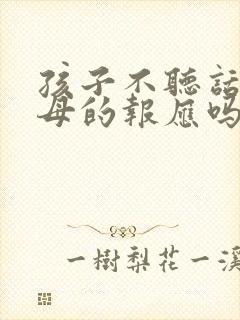 孩子不聽話
母的報應嗎
一樹梨花一溪